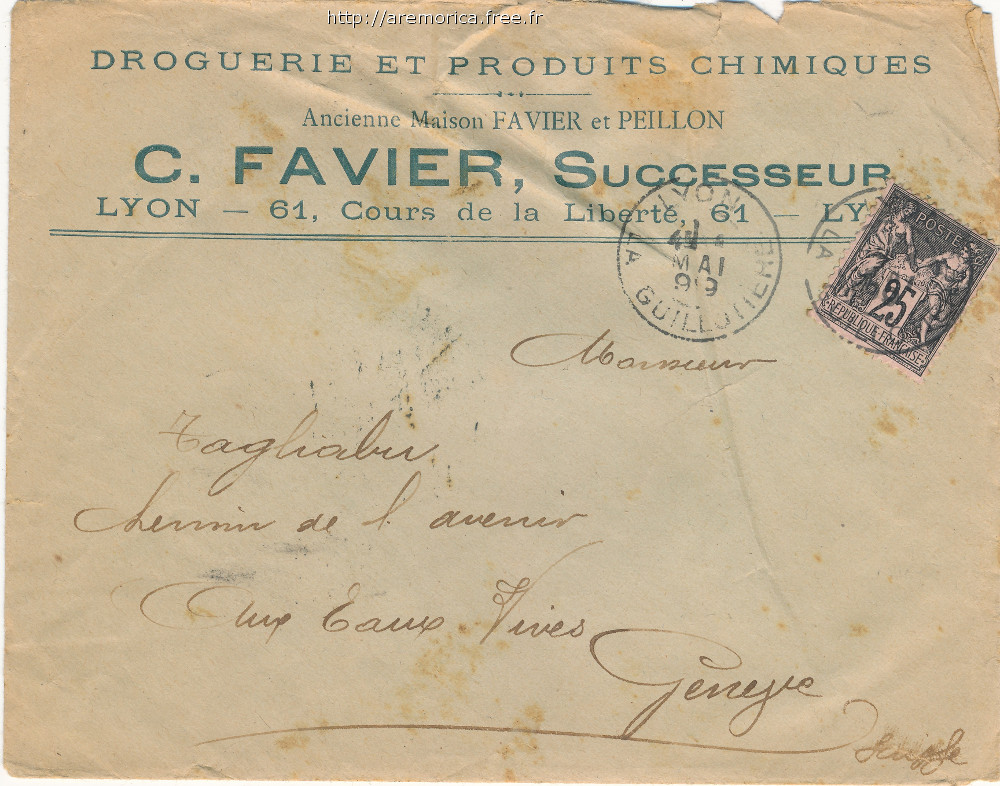 http://aremorica.free.fr
DROGUERIE ET PRODUITS CHIMIQUES
Ancienne Maison FAVIER et PEILLON
C. FAVIER, SUCCESSEUR
LYON — 61, Cours de la Liberté, 61 — LY
LYON
MAI
99
LA GUILLOTIERE
POSTE
25
REPUBLIQUE FRANCAISE
LA
Monsieur
Tagliabu
chemin de l'avenir
Aux Eaux Vives
Genève